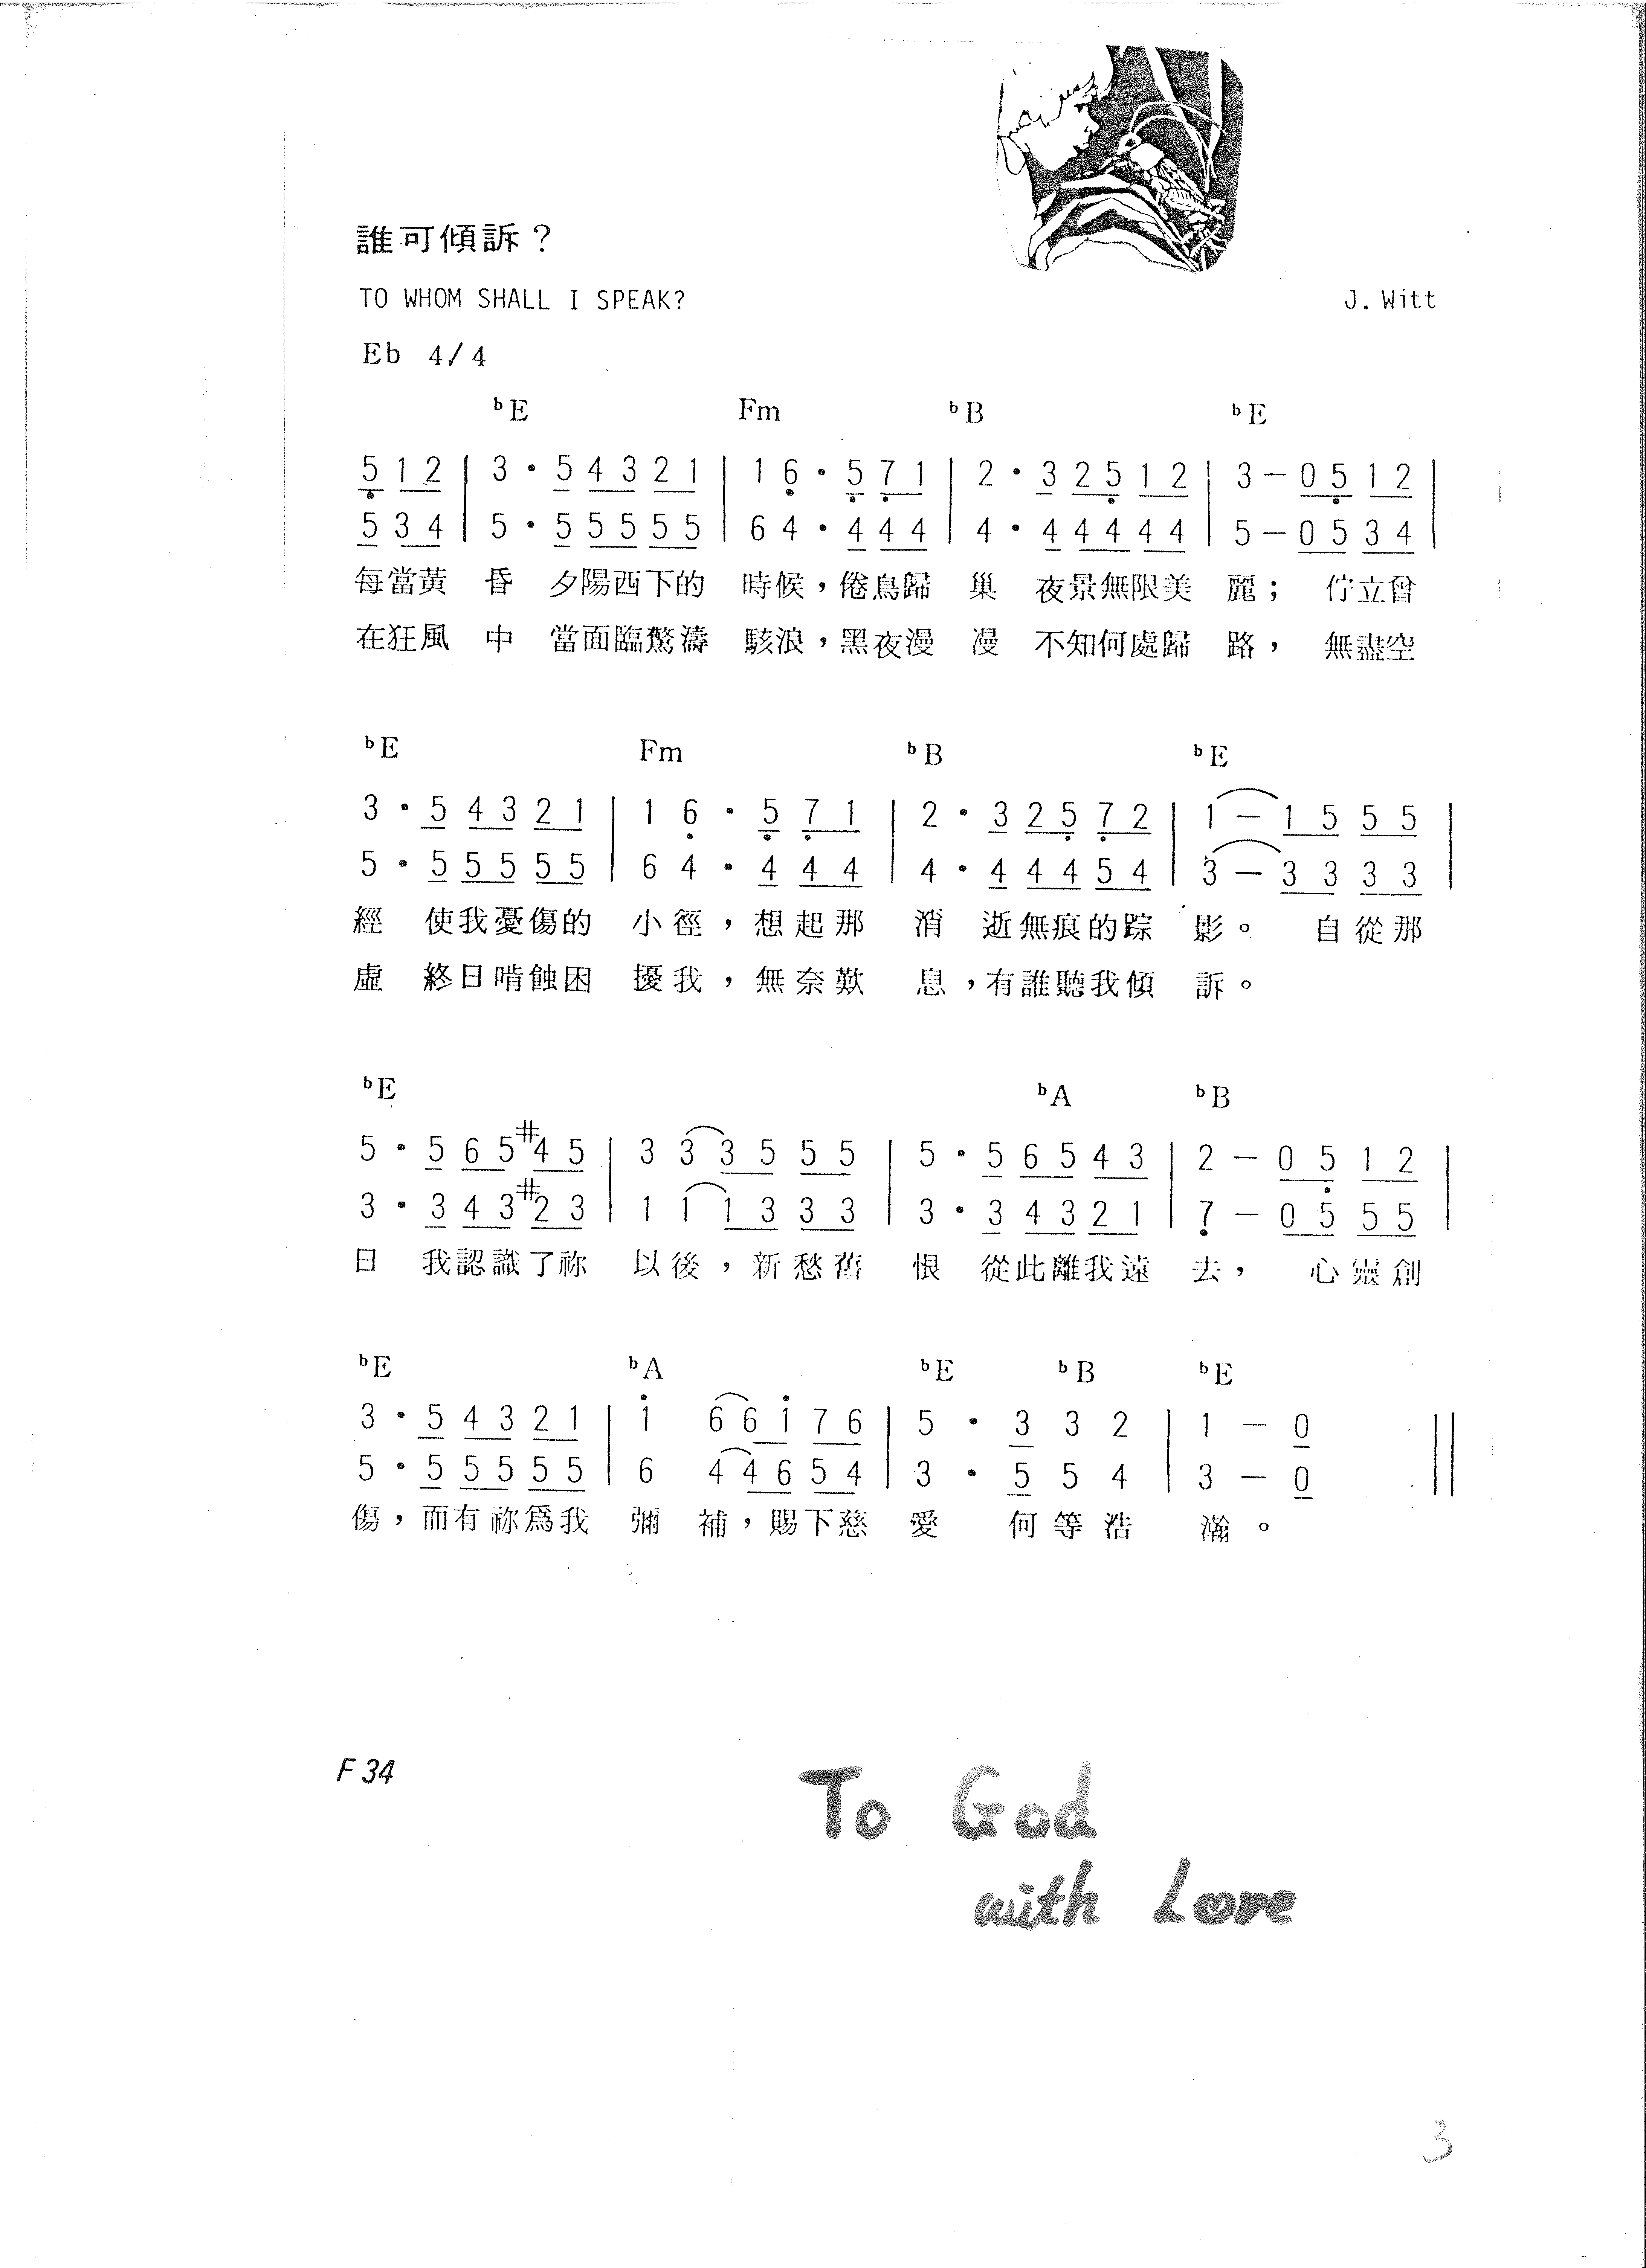 誰可傾訴？
TO WHOM SHALL I SPEAK?
J. Witt
Eb 4/4
ᵇE Fm ᵇB ᵇE
5 1 2 | 3 · 5 4 3 2 1 | 1 6 · 5 7 1 | 2 · 3 2 5 1 2 | 3 — 0 5 1 2 |
5 3 4 | 5 · 5 5 5 5 5 | 6 4 · 4 4 4 | 4 · 4 4 4 4 4 | 5 — 0 5 3 4 |
每當黃 昏 夕陽西下的 時候，倦鳥歸 巢 夜景無限美 麗； 佇立曾
在狂風 中 當面臨驚濤 駭浪，黑夜漫 漫 不知何處歸 路， 無盡空
ᵇE Fm ᵇB ᵇE
3 · 5 4 3 2 1 | 1 6 · 5 7 1 | 2 · 3 2 5 7 2 | 1 — 1 5 5 5 |
5 · 5 5 5 5 5 | 6 4 · 4 4 4 | 4 · 4 4 4 5 4 | 3 — 3 3 3 3 |
經 使我憂傷的 小徑，想起那 消 逝無痕的踪 影。 自從那
虛 終日啃蝕困 擾我，無奈歎 息，有誰聽我傾 訴。
ᵇE ᵇA ᵇB
5 · 5 6 5 #4 5 | 3 3 3 5 5 5 | 5 · 5 6 5 4 3 | 2 — 0 5 1 2 |
3 · 3 4 3 #2 3 | 1 1 1 3 3 3 | 3 · 3 4 3 2 1 | 7 — 0 5 5 5 |
日 我認識了祢 以後，新愁舊 恨 從此離我遠 去， 心靈創
ᵇE ᵇA ᵇE ᵇB ᵇE
3 · 5 4 3 2 1 | 1 6 6 1 7 6 | 5 · 3 3 2 | 1 — 0 ||
5 · 5 5 5 5 5 | 6 4 4 6 5 4 | 3 · 5 5 4 | 3 — 0 ||
傷，而有祢為我 彌 補，賜下慈 愛 何等浩 瀚。
F 34
To God
with Love
3